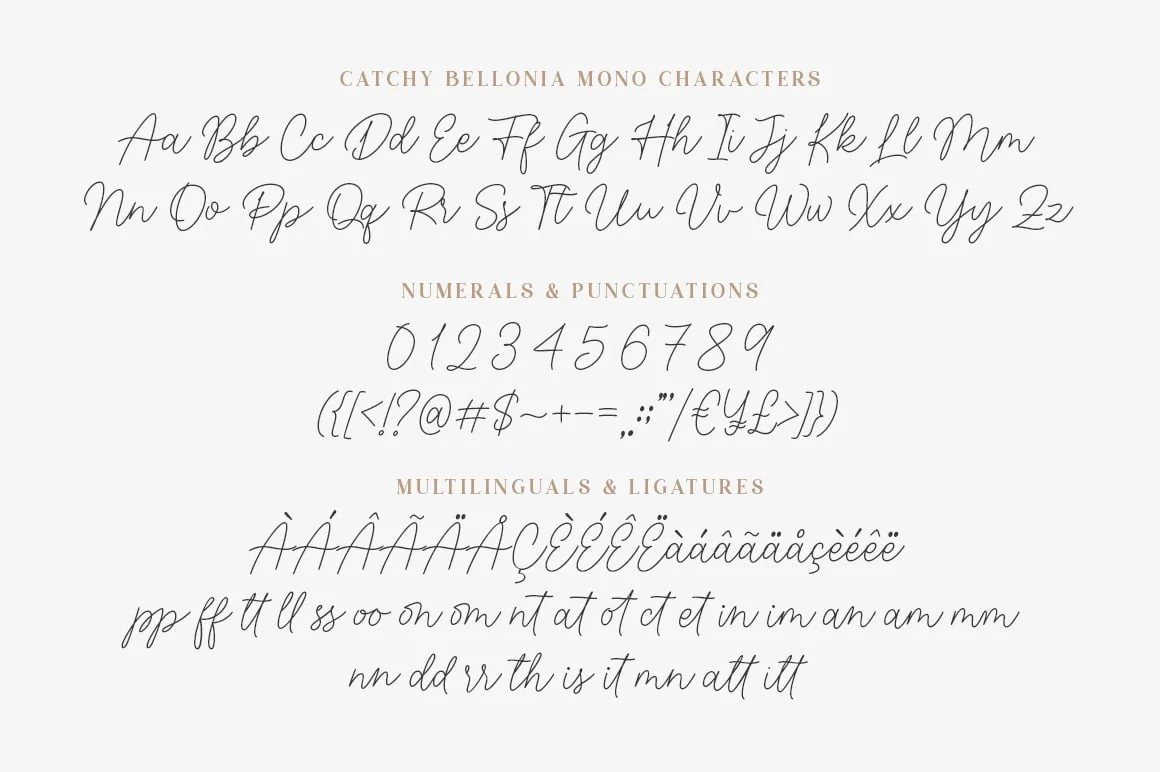 CATCHY BELLONIA MONO CHARACTERS
Aa Bb Cc Dd Ee Ff Gg Hh Ii Jj Kk Ll Mm
Nn Oo Pp Qq Rr Ss Tt Uu Vv Ww Xx Yy Zz
NUMERALS & PUNCTUATIONS
0 1 2 3 4 5 6 7 8 9
({[<!?@#$~+-=,.:;"'/€¥£>]})
MULTILINGUALS & LIGATURES
ÀÁÂÃÄÅÇÈÉÊËàáâãäåçèéêë
pp ff tt ll ss oo on om nt at ot ct et in im an am mm
nn dd rr th is it mn att itt